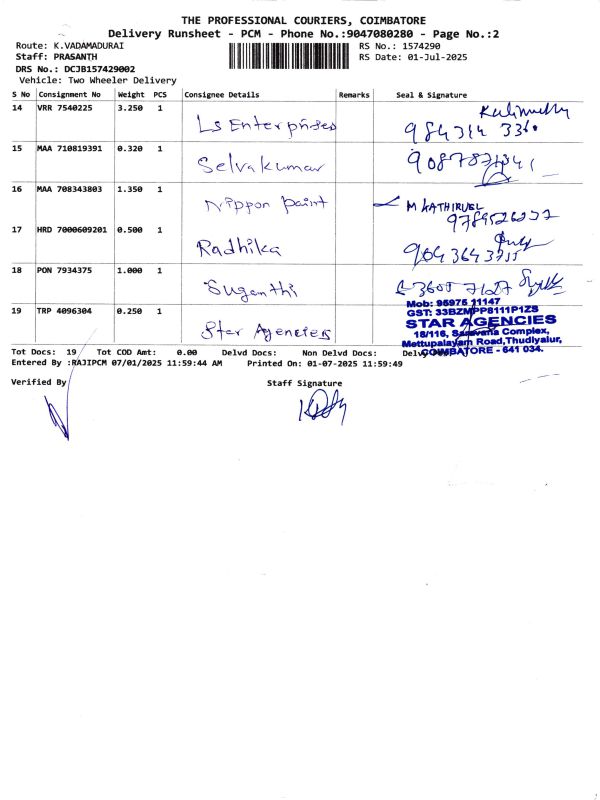 THE PROFESSIONAL COURIERS, COIMBATORE
Delivery Runsheet - PCM - Phone No.:9047080280 - Page No.:2
Route: K.VADAMADURAI RS No.: 1574290
Staff: PRASANTH RS Date: 01-Jul-2025
DRS No.: DCJB157429002
Vehicle: Two Wheeler Delivery
S No Consignment No Weight PCS Consignee Details Remarks Seal & Signature
14 VRR 7540225 3.250 1
LS Enterprises
15 MAA 710819391 0.320 1
Selvakumar
16 MAA 708343803 1.350 1
Nippon paint M KATHIRVEL
17 HRD 7000609201 0.500 1
Radhika
18 PON 7934375 1.000 1
Suganthi
Mob: 95975 11147
19 TRP 4096304 0.250 1 GST: 33BZMPP8111P1ZS
STAR AGENCIES
Star Agencies 18/116, Saravana Complex,
Mettupalayam Road, Thudiyalur,
COIMBATORE - 641 034.
Tot Docs: 19 Tot COD Amt: 0.00 Delvd Docs: Non Delvd Docs:
Entered By :RAJIPCM 07/01/2025 11:59:44 AM Printed On: 01-07-2025 11:59:49
Verified By Staff Signature